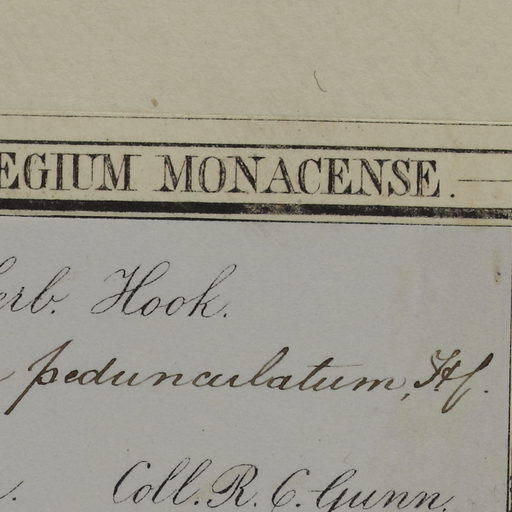 EGIUM MONACENSE.
erb. Hook.
pedunculatum, Hf.
Coll. R. C. Gunn.